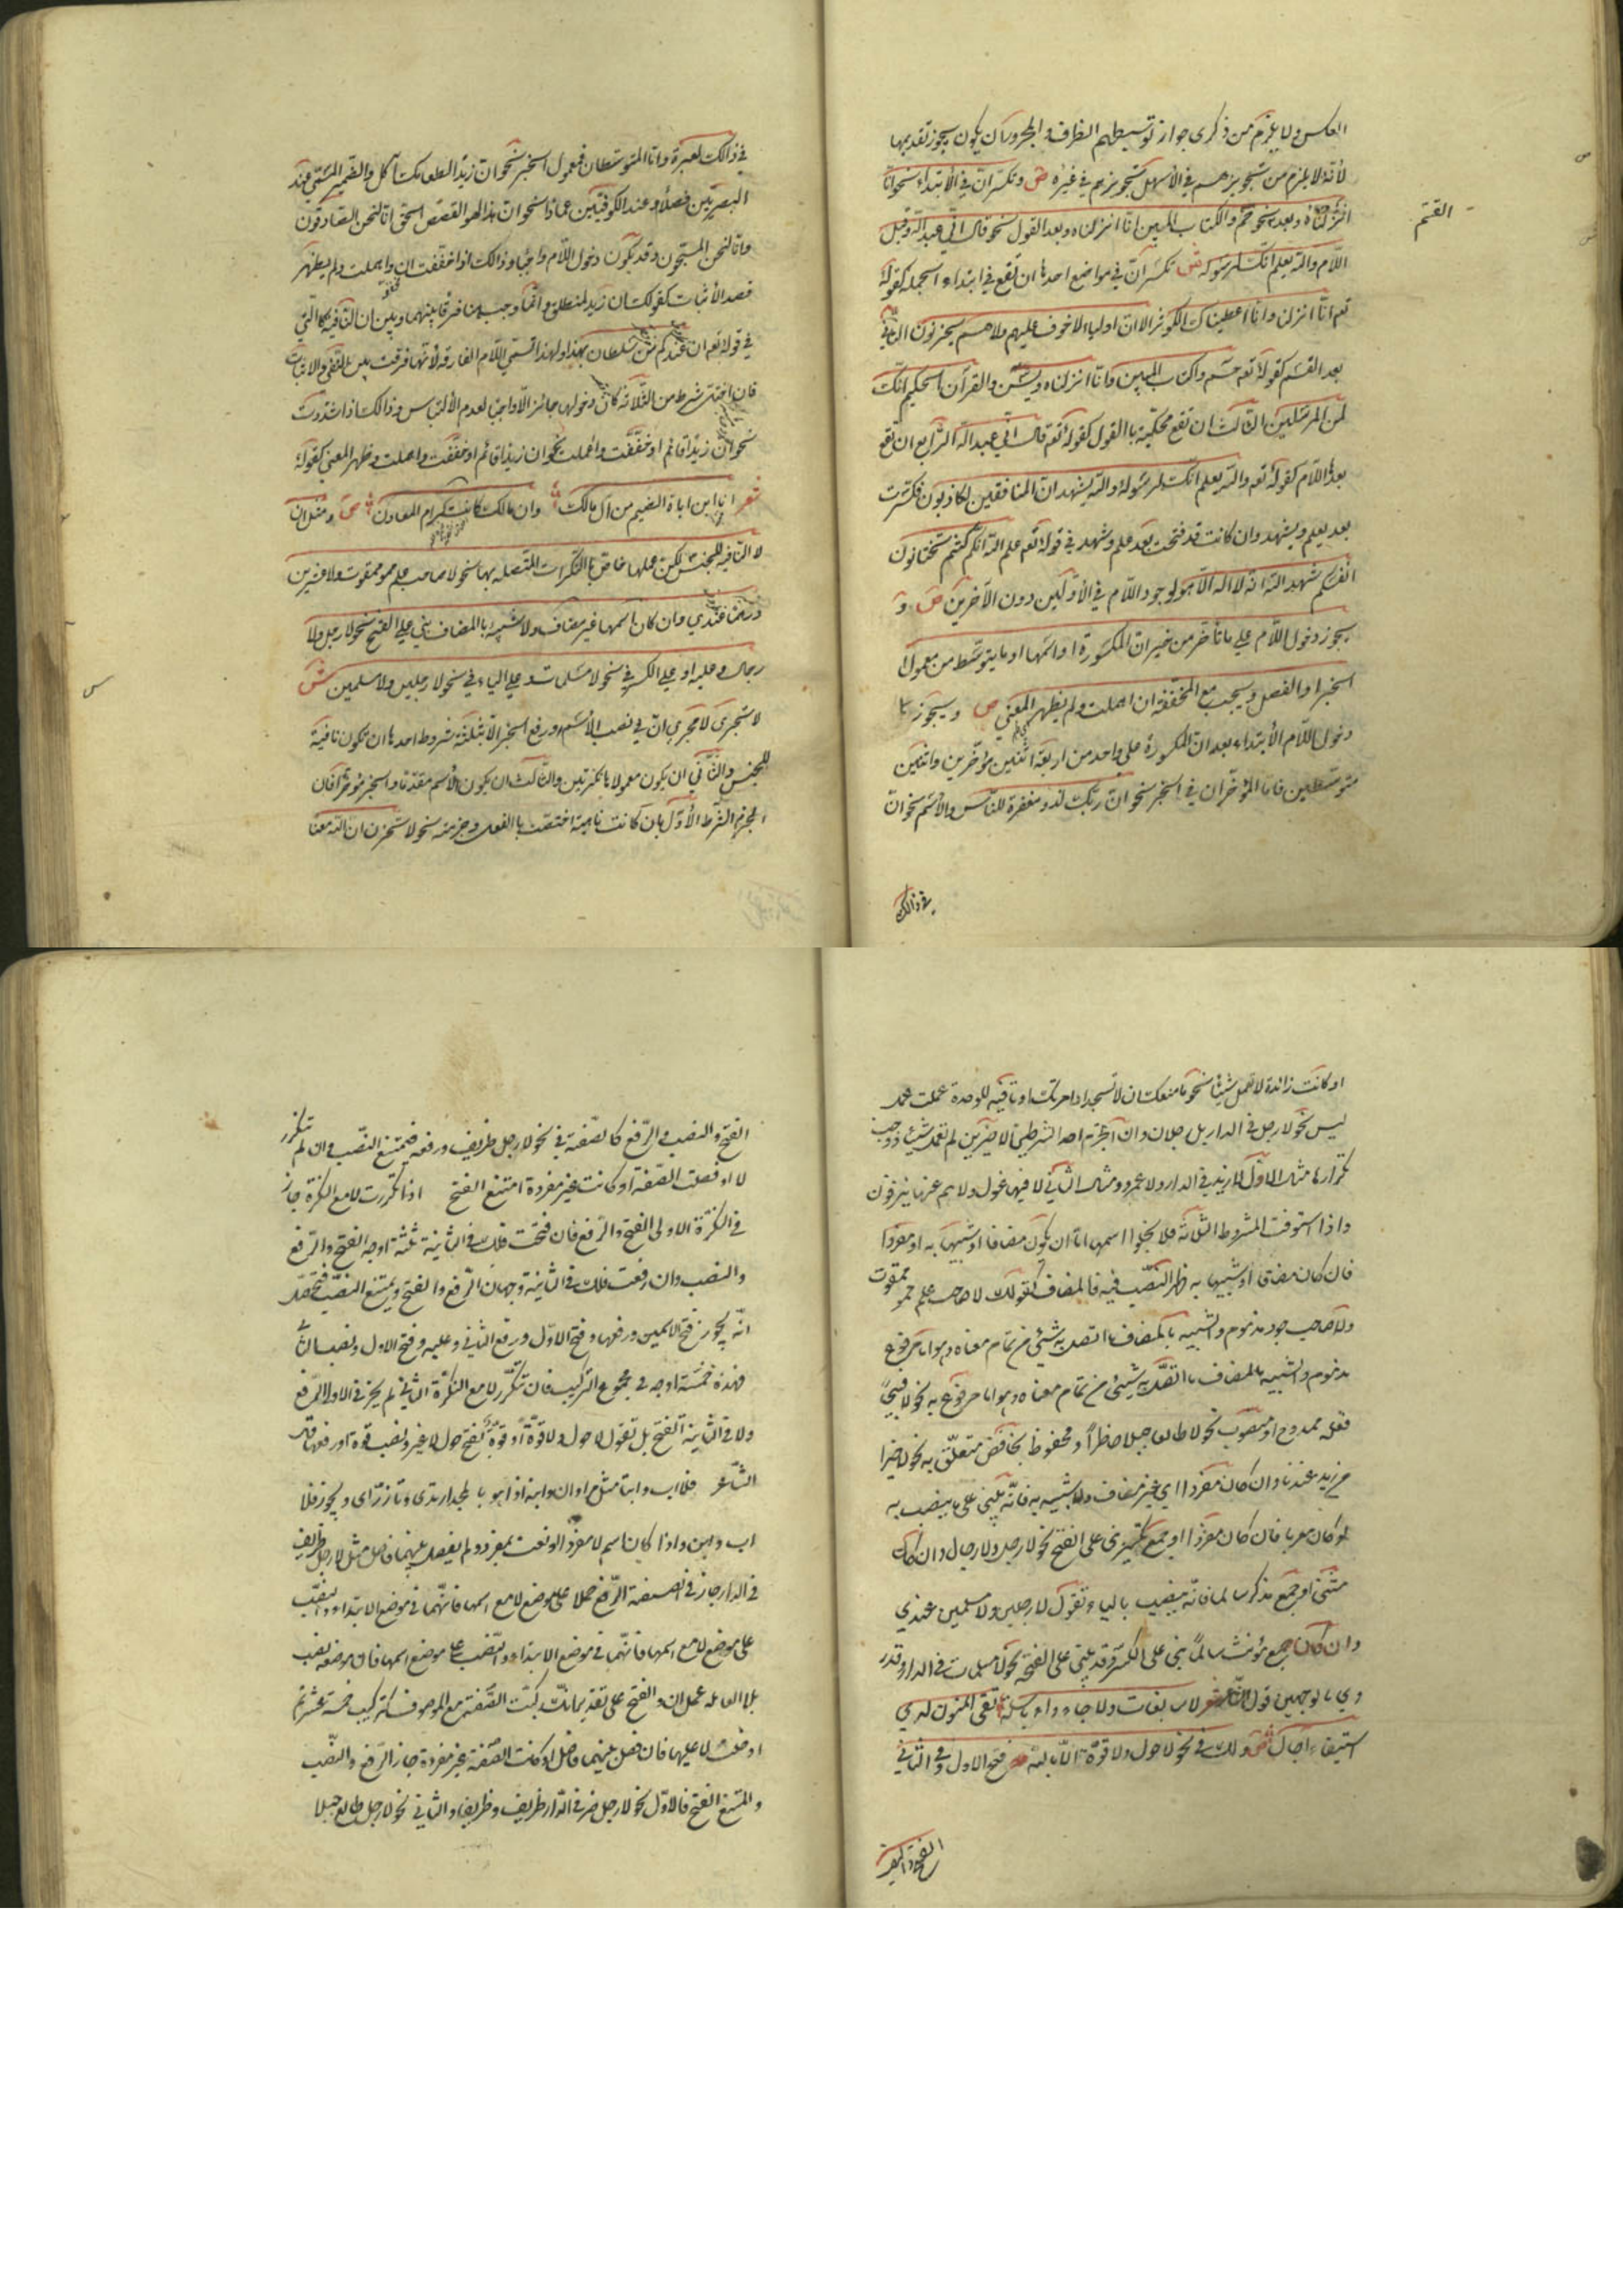 العكس ولا يلزم من ذكرى جواز توسيطهم الظرف والمجرور ان يكون يجوز تقديمها
لأنه لا يلزم من تجويزهم في الأسهل تجويزهم في غيره ص وتكسر ان في الأبتداء نحو انا
انزلناه وبعد نحو حم والكتاب المبين انا انزلناه وبعد القول نحو قال اني عبد الله وقبل
القسم
اللام والله يعلم انك لرسوله ش تكسر ان في مواضع احدها ان تقع في ابتداء الجملة كقوله
تعم انا انزلنا وانا اعطيناك الكوثر الا ان اولياء لا خوف عليهم ولا هم يحزنون الثاني
بعد القسم كقوله تعه حم والكتاب المبين وانا انزلناه ويس والقرآن الحكيم انك
لمن المرسلين الثالث ان تقع محكية با القول كقوله تعه قال اني عبد الله الرابع ان تقع
بعدها اللام كقوله تعه والله يعلم انك لرسوله والله يشهد ان المنافقين لكاذبون فكسرت
بعد يعلم ويشهد وان كانت قد فتحت بعد علم وشهد في قوله تعم علم الله انكم كنتم تختانون
انفسكم شهد الله انه لا اله الا هو لوجود اللام في الأولين دون الآخرين ص و
يجوز دخول اللام على ما تأخر من خبر ان المكسورة او اسمها او ما يتوسط من معمول
الخبر او الفصل ويجب مع المخففة ان اهملت ولم يظهر المعنى ص ويجوز
دخول اللام الأبتداء بعد ان المكسورة على واحد من اربعة اثنين مؤخرين واثنين
متوسطين فاما المؤخران في الخبر نحو ان ربك لذو مغفرة للناس والأسم نحو ان
في ذالك
في ذالك لعبرة واما المتوسطان فمعمول الخبر نحو ان زيدا لطعامك آكل والضمير المسمى عند
البصريين فصلا وعند الكوفيين عمادا نحو ان هذا لهو القصص الحق انا لنحن الصادقون
وانا لنحن المسبحون وقد يكون دخول اللام واجبا وذالك اذا خففت ان واهملت ولم يظهر
قصد الأثبات كقولك ان زيد لمنطلق وانما وجب هنا فرقا بينهما وبين ان النافية كالتي
في قوله تعم ان عندكم من سلطان بهذا ولهذا تسمى اللام الفارقة لأنها فرقت بين النفي والاثبات
فان اختل شرط من الثلاثة كان دخولها جائزا لا واجبا لعدم الألتباس وذالك اذا شددت
نحو ان زيدا قائم او خففت واعملت نحو ان زيدا قائم او خففت واهملت وظهر المعنى كقوله
شعر انا ابن اباة الضيم من آل مالك وان مالك كانت كرام المعادن ص ومثل ان
لا النافية للجنس لكن عملها خاص با النكرات المتصلة بها نحو لا صاحب علم ممقوت ولا عشرين
درهما عندي وان كان اسمها غير مضاف ولا شبهه با المضاف بني على الفتح نحو لا رجل ولا
رجال وعليه او على الكسر في نحو لا مسلمات وعلى الياء في نحو لا رجلين ولا مسلمين ش
لا تجرى لا مجرى ان في نصب الأسم ورفع الخبر الا بثلثة شروط احدها ان تكون نافية
للجنس والثاني ان يكون معمولاها نكرتين والثالث ان يكون الأسم مقدما والخبر مؤخرا فان
انخرم الشرط الأول بان كانت ناهية اختصت با الفعل وجزمته نحو لا تحزن ان الله معنا
او كانت زائدة لا تعمل شيئا نحو ما منعك ان لا تسجد اذ امرتك او نافية للوحدة عملت عمل
ليس نحو لا رجل في الدار بل رجلان وان انخرم احد الشرطين الاخيرين لم تعمل شيئا ووجب
تكرارها مثال الاول لا زيد في الدار ولا عمرو ومثال الثاني لا فيها غول ولا هم عنها ينزفون
واذا استوفت الشروط الثلاثة فلا يخلوا اسمها اما ان يكون مضافا او شبيها به او مفردا
فان كان مضافا او شبيها به ظهر النصب فيه فالمضاف كقولك لا صاحب علم ممقوت
ولا صاحب جود مذموم والشبيه بالمضاف ما اتصل به شيئ من تمام معناه وهو اما مرفوع
مذموم والشبيه بالمضاف ما اتصل به شيئ من تمام معناه وهو اما مرفوع به نحو لا قبيحا
فعله ممدوح او منصوب نحو لا طالعا جبلا حاضرا او مخفوض بخافض متعلق به نحو لا خيرا
من زيد عندنا وان كان مفردا اي غير مضاف ولا شبيه به فانه يبنى على ما ينصب به
لو كان معربا فان كان مفردا او جمع تكسير بني على الفتح نحو لا رجل ولا رجال وان كان
مثنى او جمع مذكر سالما فانه ينصب بالياء وتقول لا رجلين ولا مسلمين عندي
وان كان جمع مؤنث سالما بني على الكسر وقد يبنى على الفتح نحو لا مسلمات في الدار وقد
روي بالوجهين قول الشاعر لا سابغات ولا جاواء باسلة تقى المنون لدى
استيفاء آجال ص ولك في نحو لا حول ولا قوة الا بالله فتح الاول وفي الثاني
الفتح والنصب والرفع كالصفة في نحو لا رجل ظريف ورفعه فيمتنع النصب وان لم تتكرر
لا او فصلت الصفة او كانت غير مفردة امتنع الفتح اذا تكررت لا مع النكرة جاز
في النكرة الاولى الفتح والرفع فان فتحت فلك في الثانية ثلثة اوجه الفتح والرفع
والنصب وان رفعت فلك في الثانية وجهان الرفع والفتح ويمتنع النصب فتحصل
انه يجوز فتح الاسمين ورفعهما وفتح الاول ورفع الثاني وعكسه وفتح الاول ونصب الثاني
فهذه خمسة اوجه في مجموع التركيب فان لم تتكرر لا مع النكرة الثاني لم يجز في الاولى الرفع
ولا في الثانية الفتح بل تقول لا حول ولا قوة او قوة بفتح حول لا غير ونصب قوة او رفعها قال
الشاعر فلا اب وابنا مثل مروان وابنه اذا هو با لمجد ارتدى وتازرا ويجوز فلا
اب وابن واذا كان اسم لا مفردا ونعت بمفرد ولم يفصل بينهما فاصل مثل لا رجل ظريف
في الدار جاز في الصفة الرفع حملا على موضع لا مع اسمها فانهما في موضع الابتداء والنصب
على موضع لا مع اسمها فانهما في موضع الابتداء والنصب على موضع اسمها فان موضعه نصب
بلا العاملة عمل ان والفتح على تقدير انك ركبت الصفة مع الموصوف كتركيب خمسة عشر ثم
ادخلت لا عليها فان فصل بينهما فاصل او كانت الصفة غير مفردة جاز الرفع والنصب
وامتنع الفتح فالاول نحو لا رجل في الدار ظريف وظريفا والثاني نحو لا رجل طالعا جبلا